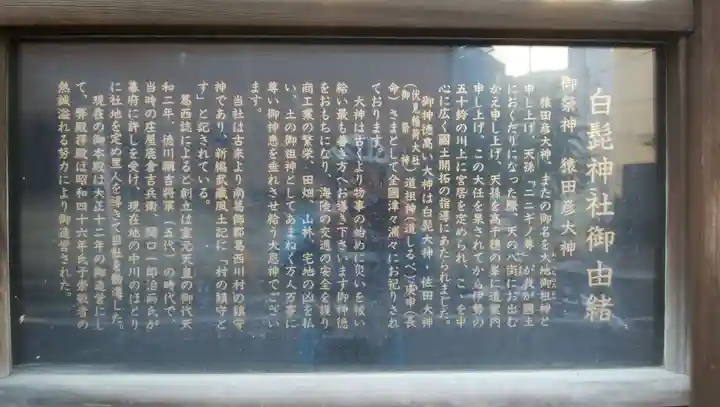 白髭神社御由緒
御祭神 猿田彦大神
猿田彦大神、またの御名を大地御祖神と
申し上げ、天孫「ニニギノ尊」が我が國土
におくだりになった際、天の八衢にお出む
かえ申し上げ、天孫を高千穂の峯に道案内
申し上げ、この大任を果されてから伊勢の
五十鈴の川上に宮居を定められ、こゝを中
心に広く國土開拓の指導にあたられました。
御神徳高い大神は白髭大神、佐田大神
道祖神(道しるべ)庚申(長
命)さまとして全国津々浦々にお祀りされ
ております。
大神は古くより物事の始めに災いを祓い
給い最も善き方へお導き下さいます御神徳
をおもちになり、海陸の交通の安全を護り、
商工業の繁栄、田畑、山林、宅地の凶を払
い、土の御祖神としてあまねく万人万事に
尊い御神恵を垂れさせ給う大恩神でござい
ます。
当社は古来より南葛飾郡葛西川村の鎮守
神であり、新編武蔵風土記に「村の鎮守と
す」と記されている。
葛西誌によると創立は霊元天皇の御代天
和二年、徳川綱吉将軍(五代)の時代で、
当時の庄屋鹿倉吉兵衛、関口一郎治両氏が
幕府に許しを受け、現在地の中川のほとり
に社地を定め里人を導きて日社を創建した。
現在の御本殿は大正十二年の御造営にし
て、幣殿拝殿は昭和四十六年氏子崇敬者の
熱誠溢れる努力により御造営された。